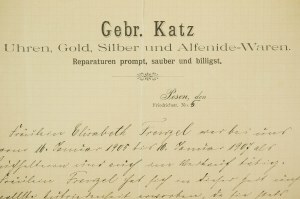 Gebr. Katz
Uhren, Gold, Silber und Alfenide-Waren.
Reparaturen prompt, sauber und billigst.
Posen, den
Friedrichstr. No. 6
Fräulein Elisabeth Frenzel war bei uns
vom 16. Januar 1905 bis 16. Januar 1907 als
und auch im Verkauf tätig.
Fräulein Frenzel hat sich in dieser Zeit